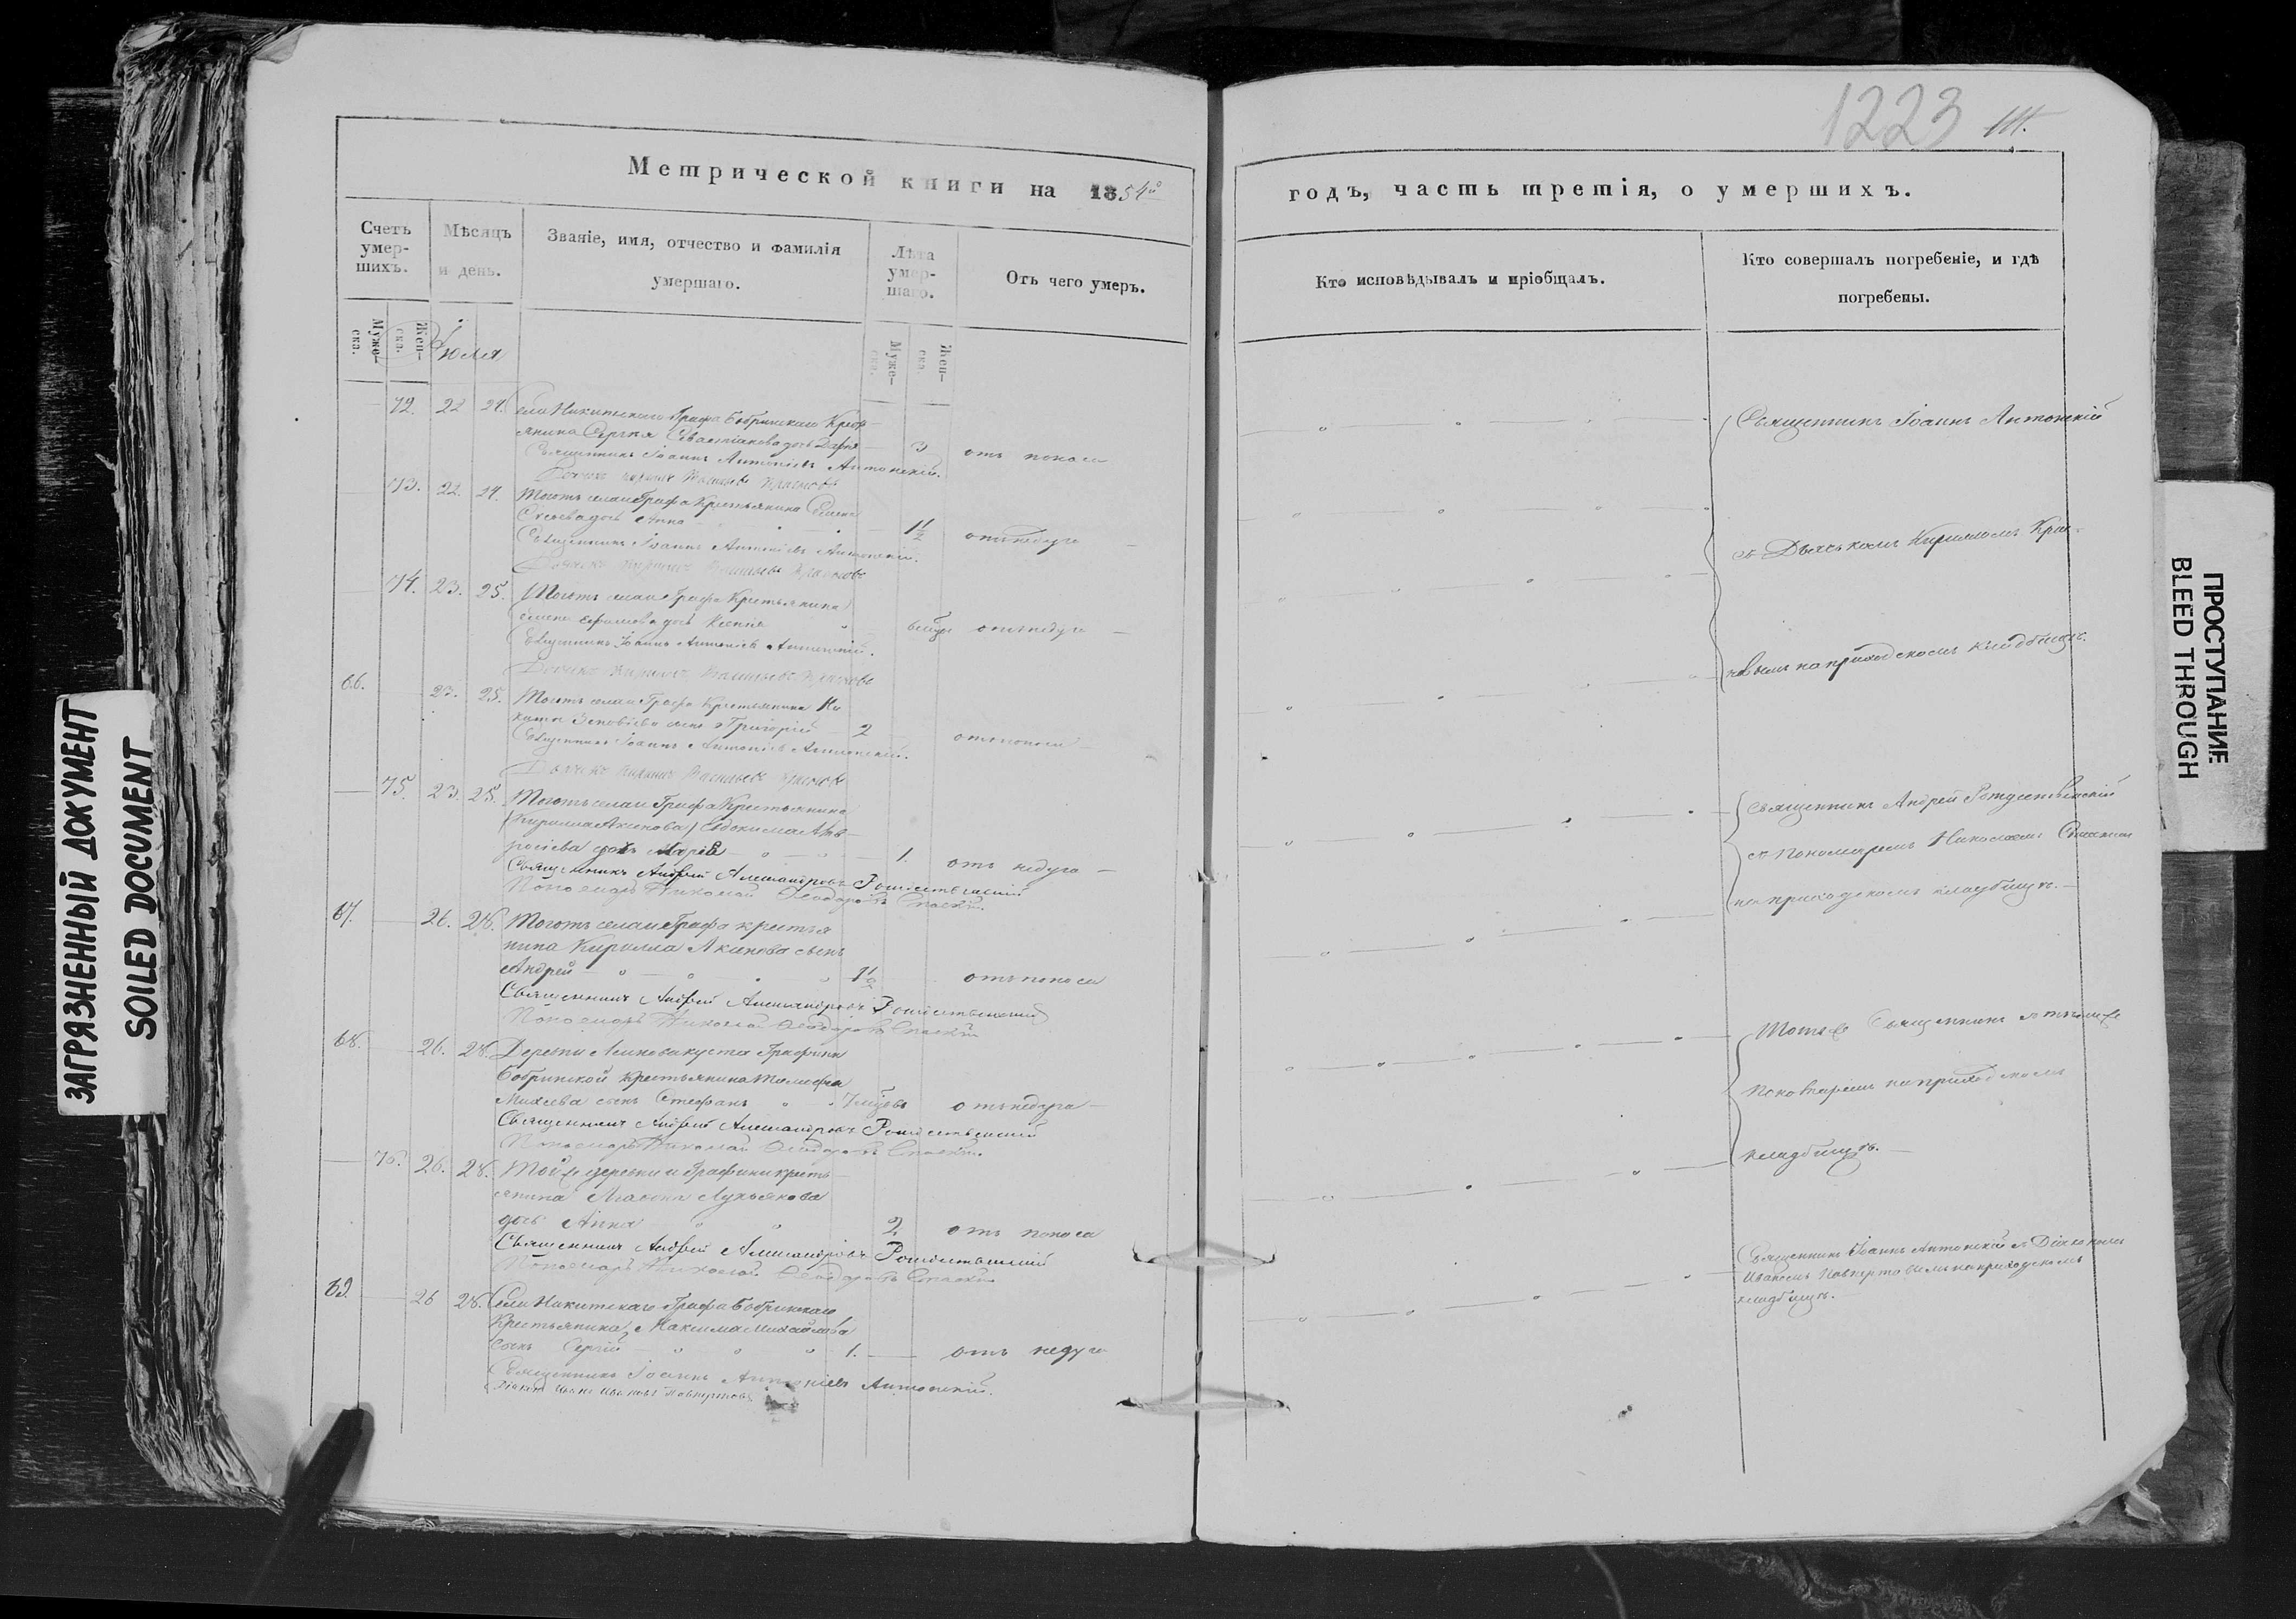 1223
Метрической книги на 1854й
Счетъ умер-шихъ.
Мѣсяцъ и день.
Званіе, имя, отчество и фамилія умершаго.
Лѣта умер-шаго.
Отъ чего умеръ.
Муже-ска.
Жен-ска.
Муже-ска.
Жен-ска.
Іюля
72. 22 24. Села Никитскаго Графа Бобринскаго Крест-
янина Сергея Севастіанова дочь Дарья 3 отъ поноса
Священникъ Іоаннъ Антоніевъ Антонскій.
73. 22. 24. Тогожъ села и Графа Крестьянина
дочь Анна 1 1/2 отъ недуга
Священникъ Іоаннъ Антоніевъ Антонскій.
74. 23. 25. Тогожъ села и Графа Крестьянина
Ефимова дочь Ксенія отъ недуга
Священникъ Іоаннъ Антоніевъ Антонскій.
66. 23. 25. Тогожъ села и Графа Крестьянина Ни
киты Зеновіева сынъ Григорій 2 отъ поноса
Священникъ Іоаннъ Антоніевъ Антонскій.
75. 23. 25. Тогожъ села и Графа Крестьянина
(Кирилла Акимова) Евдокима Амв-
росіева дочь Марія 1. отъ недуга
Священникъ Андрей Александровъ Рождественскій
Пономарь Николай Феодоровъ Спаскій.
67. 26. 28. Тогожъ села и Графа крестья
нина Кирилла Акимова сынъ
Андрей 1 1/2 отъ поноса
Священникъ Андрей Александровъ Рождественскій
Пономарь Николай Феодоровъ Спаскій
68. 26. 28. Деревни Графини
Бобринской крестьянина
Михеева сынъ Стефанъ отъ недуга
Священникъ Андрей Александровъ Рождественскій
Пономарь Николай Феодоровъ Спаскій.
76. 26. 28. Той же деревни и Графини кресть-
янина Лукьянова
дочь Анна 2 отъ поноса
Священникъ Андрей Александровъ Рождественскій
Пономарь Николай Феодоровъ Спаскій
69. 26 28. Села Никитскаго Графа Бобринскаго
Крестьянина Максима Михайлова
сынъ Сергій 1. отъ недуга
Священникъ Іоаннъ Антоніевъ Антонскій.
годъ, часть третія, о умершихъ.
Кто исповѣдывалъ и пріобщалъ.
Кто совершалъ погребеніе, и гдѣ погребены.
Священникъ Іоаннъ Антонскій
съ Дьячкомъ Крас-
новымъ на приходскомъ кладбищѣ.
Священникъ Андрей Рождественскій
съ Пономаремъ Николаемъ Спаскимъ
на приходскомъ кладбищѣ.
Тотъ же Священникъ съ тѣмъ же
Пономаремъ на приходскомъ
кладбищѣ.
Священникъ Іоаннъ Антонскій съ Діакономъ
на приходскомъ
кладбищѣ.
ЗАГРЯЗНЕННЫЙ ДОКУМЕНТ
SOILED DOCUMENT
ПРОСТУПАНИЕ
BLEED THROUGH